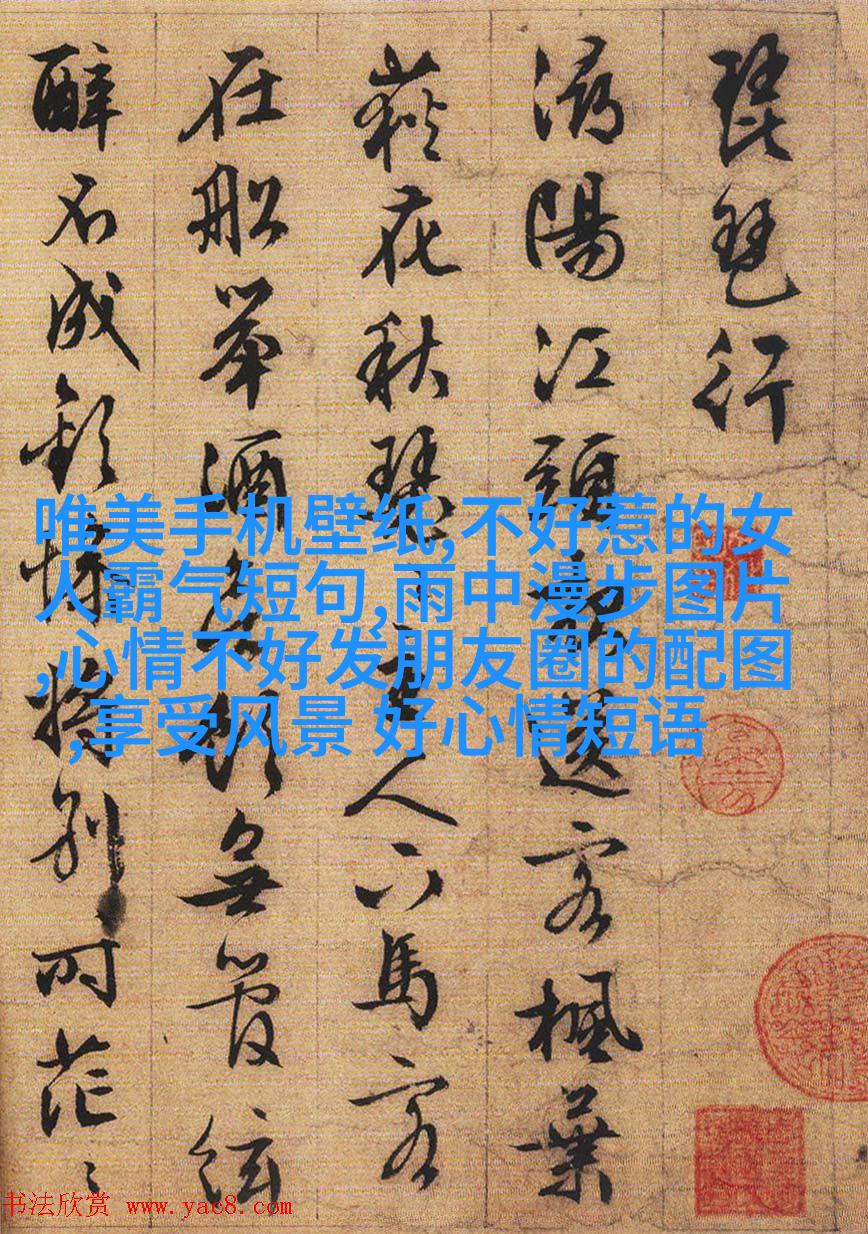 琵琶行
潯陽江頭夜送客楓葉
荻花秋瑟〻主人下馬客
在船舉酒欲飲無管絃
醉不成歡慘將別時茫〻
唯美手机壁纸,不好惹的女
人霸气短句,雨中漫步图片
,心情不好发朋友圈的配图
,享受风景 好心情短语
书法欣赏 www.yac8.com